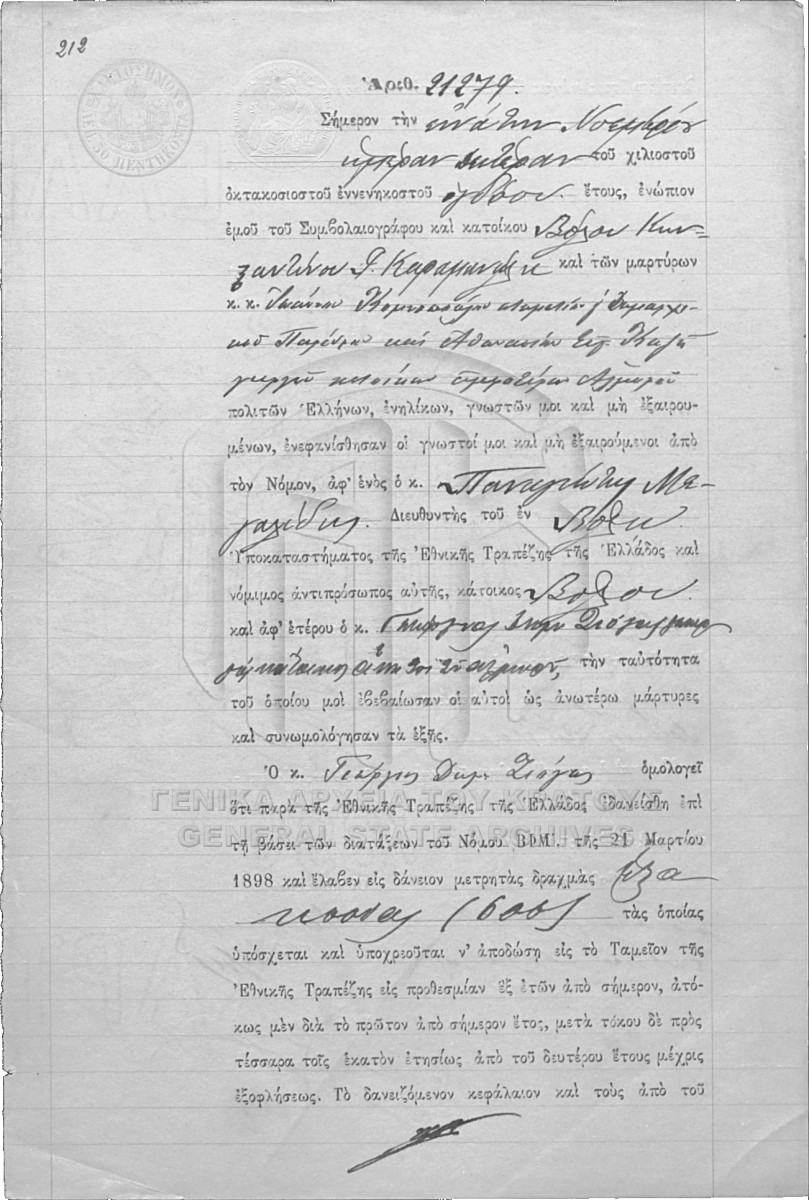 212
ΧΑΡΤΟΣΗΜΟΝ
ΛΕΠ. 50 ΠΕΝΤΗΚΟΝΤΑ
Ἀριθ. 21279.
Σήμερον τὴν ἐνάτην Νοεμβρίου
ἡμέραν Δευτέραν τοῦ χιλιοστοῦ
ὀκτακοσιοστοῦ ἐννενηκοστοῦ ὀγδόου ἔτους, ἐνώπιον
ἐμοῦ τοῦ Συμβολαιογράφου καὶ κατοίκου Βόλου Κων-
σταντίνου καὶ τῶν μαρτύρων
κ. κ. Ἰωάννου
καὶ Ἀθανασίου
Ἁλμυροῦ
πολιτῶν Ἑλλήνων, ἐνηλίκων, γνωστῶν μοι καὶ μὴ ἐξαιρου-
μένων, ἐνεφανίσθησαν οἱ γνωστοί μοι καὶ μὴ ἐξαιρούμενοι ἀπὸ
τὸν Νόμον, ἀφ' ἑνὸς ὁ κ. Παναγιώτης Με-
γαλίδης. Διευθυντὴς τοῦ ἐν Βόλῳ.
Ὑποκαταστήματος τῆς Ἐθνικῆς Τραπέζης τῆς Ἑλλάδος καὶ
νόμιμος ἀντιπρόσωπος αὐτῆς, κάτοικος Βόλου.
καὶ ἀφ' ἑτέρου ὁ κ. Γεώργιος Δημ.
τὴν ταὐτότητα
τοῦ ὁποίου μοὶ ἐβεβαίωσαν οἱ αὐτοὶ ὡς ἀνωτέρω μάρτυρες
καὶ συνωμολόγησαν τὰ ἑξῆς.
Ὁ κ. Γεώργιος Δημ. ὁμολογεῖ
ΓΕΝΙΚΑ ΑΡΧΕΙΑ ΤΟΥ ΚΡΑΤΟΥΣ
ὅτι παρὰ τῆς Ἐθνικῆς Τραπέζης τῆς Ἑλλάδος ἐδανείσθη ἐπὶ
GENERAL STATE ARCHIVES
τῇ βάσει τῶν διατάξεων τοῦ Νόμου ΒΦΜ'. τῆς 21 Μαρτίου
1898 καὶ ἔλαβεν εἰς δάνειον μετρητὰς δραχμὰς ἑξα
κοσίας (600) τὰς ὁποίας
ὑπόσχεται καὶ ὑποχρεοῦται ν' ἀποδώσῃ εἰς τὸ Ταμεῖον τῆς
Ἐθνικῆς Τραπέζης εἰς προθεσμίαν ἓξ ἐτῶν ἀπὸ σήμερον, ἀτό-
κως μὲν διὰ τὸ πρῶτον ἀπὸ σήμερον ἔτος, μετὰ τόκου δὲ πρὸς
τέσσαρα τοῖς ἑκατὸν ἐτησίως ἀπὸ τοῦ δευτέρου ἔτους μέχρις
ἐξοφλήσεως. Τὸ δανειζόμενον κεφάλαιον καὶ τοὺς ἀπὸ τοῦ